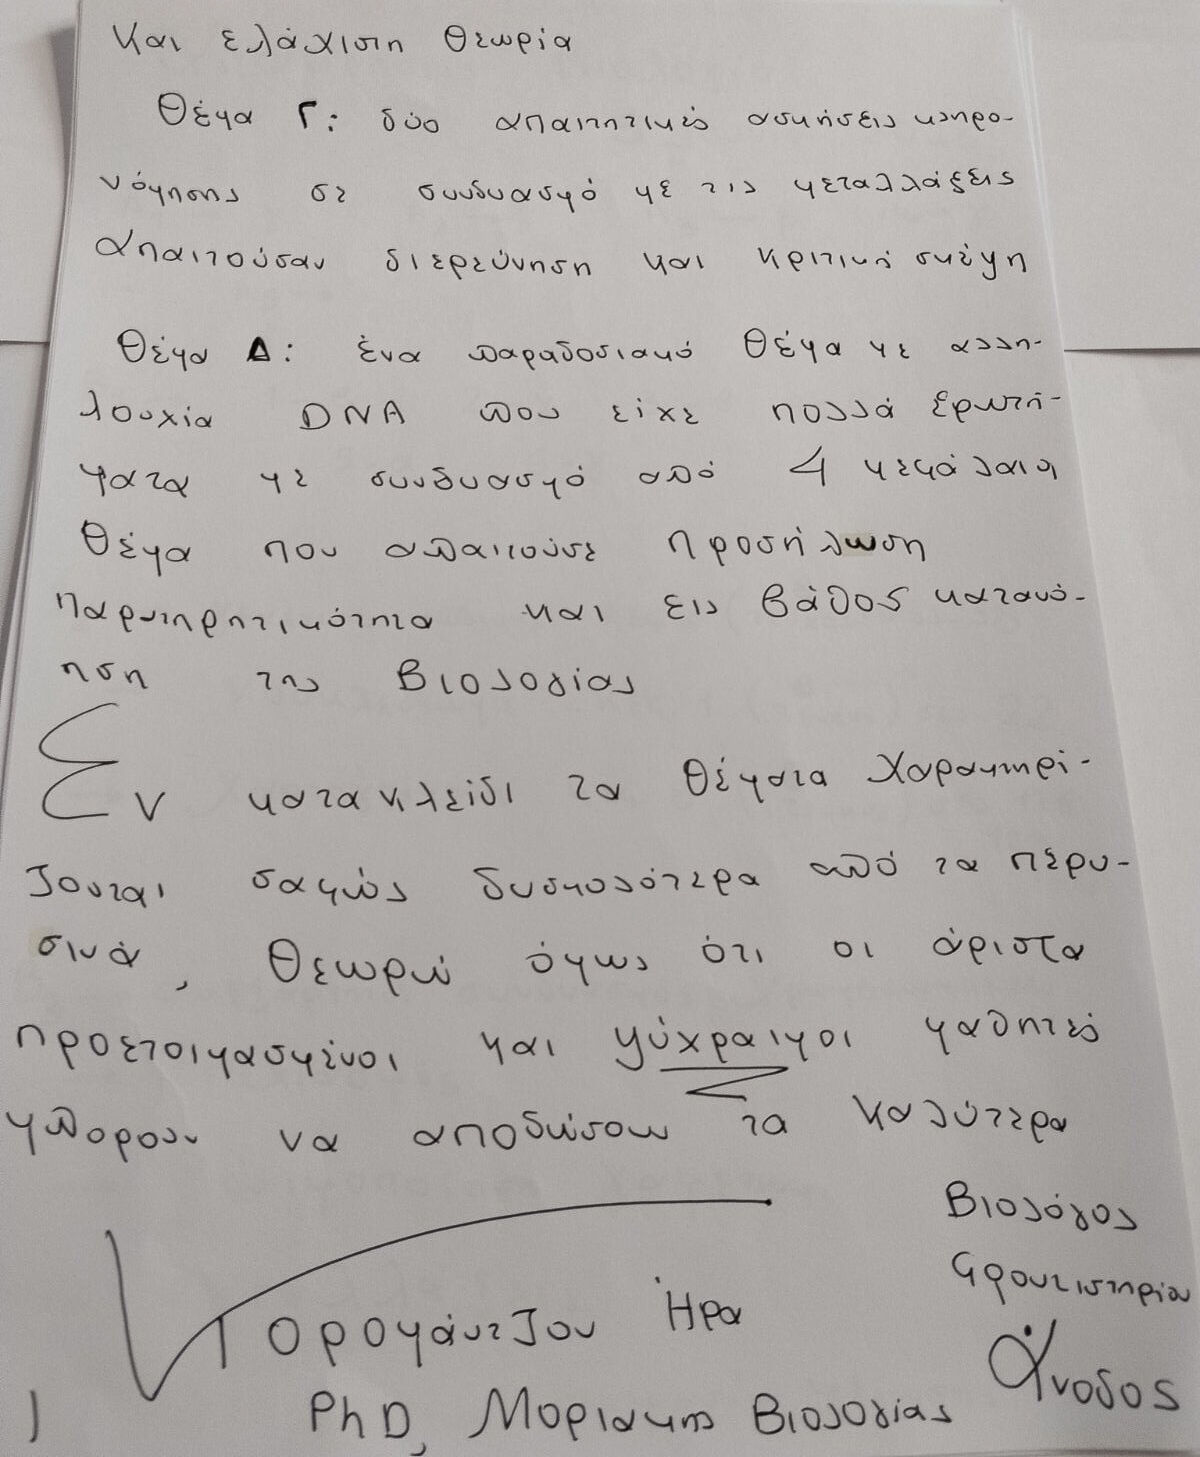 και ελάχιστη θεωρία
Θέμα Γ: δύο απαιτητικές ασκήσεις κληρο-
νόμησης σε συνδυασμό με τις μεταλλάξεις
απαιτούσαν διερεύνηση και κριτική σκέψη
Θέμα Δ: ένα παραδοσιακό θέμα με αλλη-
λουχία DNA που είχε πολλά ερωτή-
ματα με συνδυασμό από 4 κεφάλαια
Θέμα που απαιτούσε προσήλωση
παρατηρητικότητα και εις βάθος κατανό-
ηση της Βιολογίας
Εν κατακλείδι τα θέματα χαρακτηρί-
ζονται σαφώς δυσκολότερα από τα περυ-
σινά, Θεωρώ όμως ότι οι άριστα
προετοιμασμένοι και ψύχραιμοι μαθητές
μπορούν να αποδώσουν τα καλύτερα
Βιολόγος
Φροντιστηρίου
Άνοδος
Τορομάντζου Ήρα
PhD, Μοριακής Βιολογίας